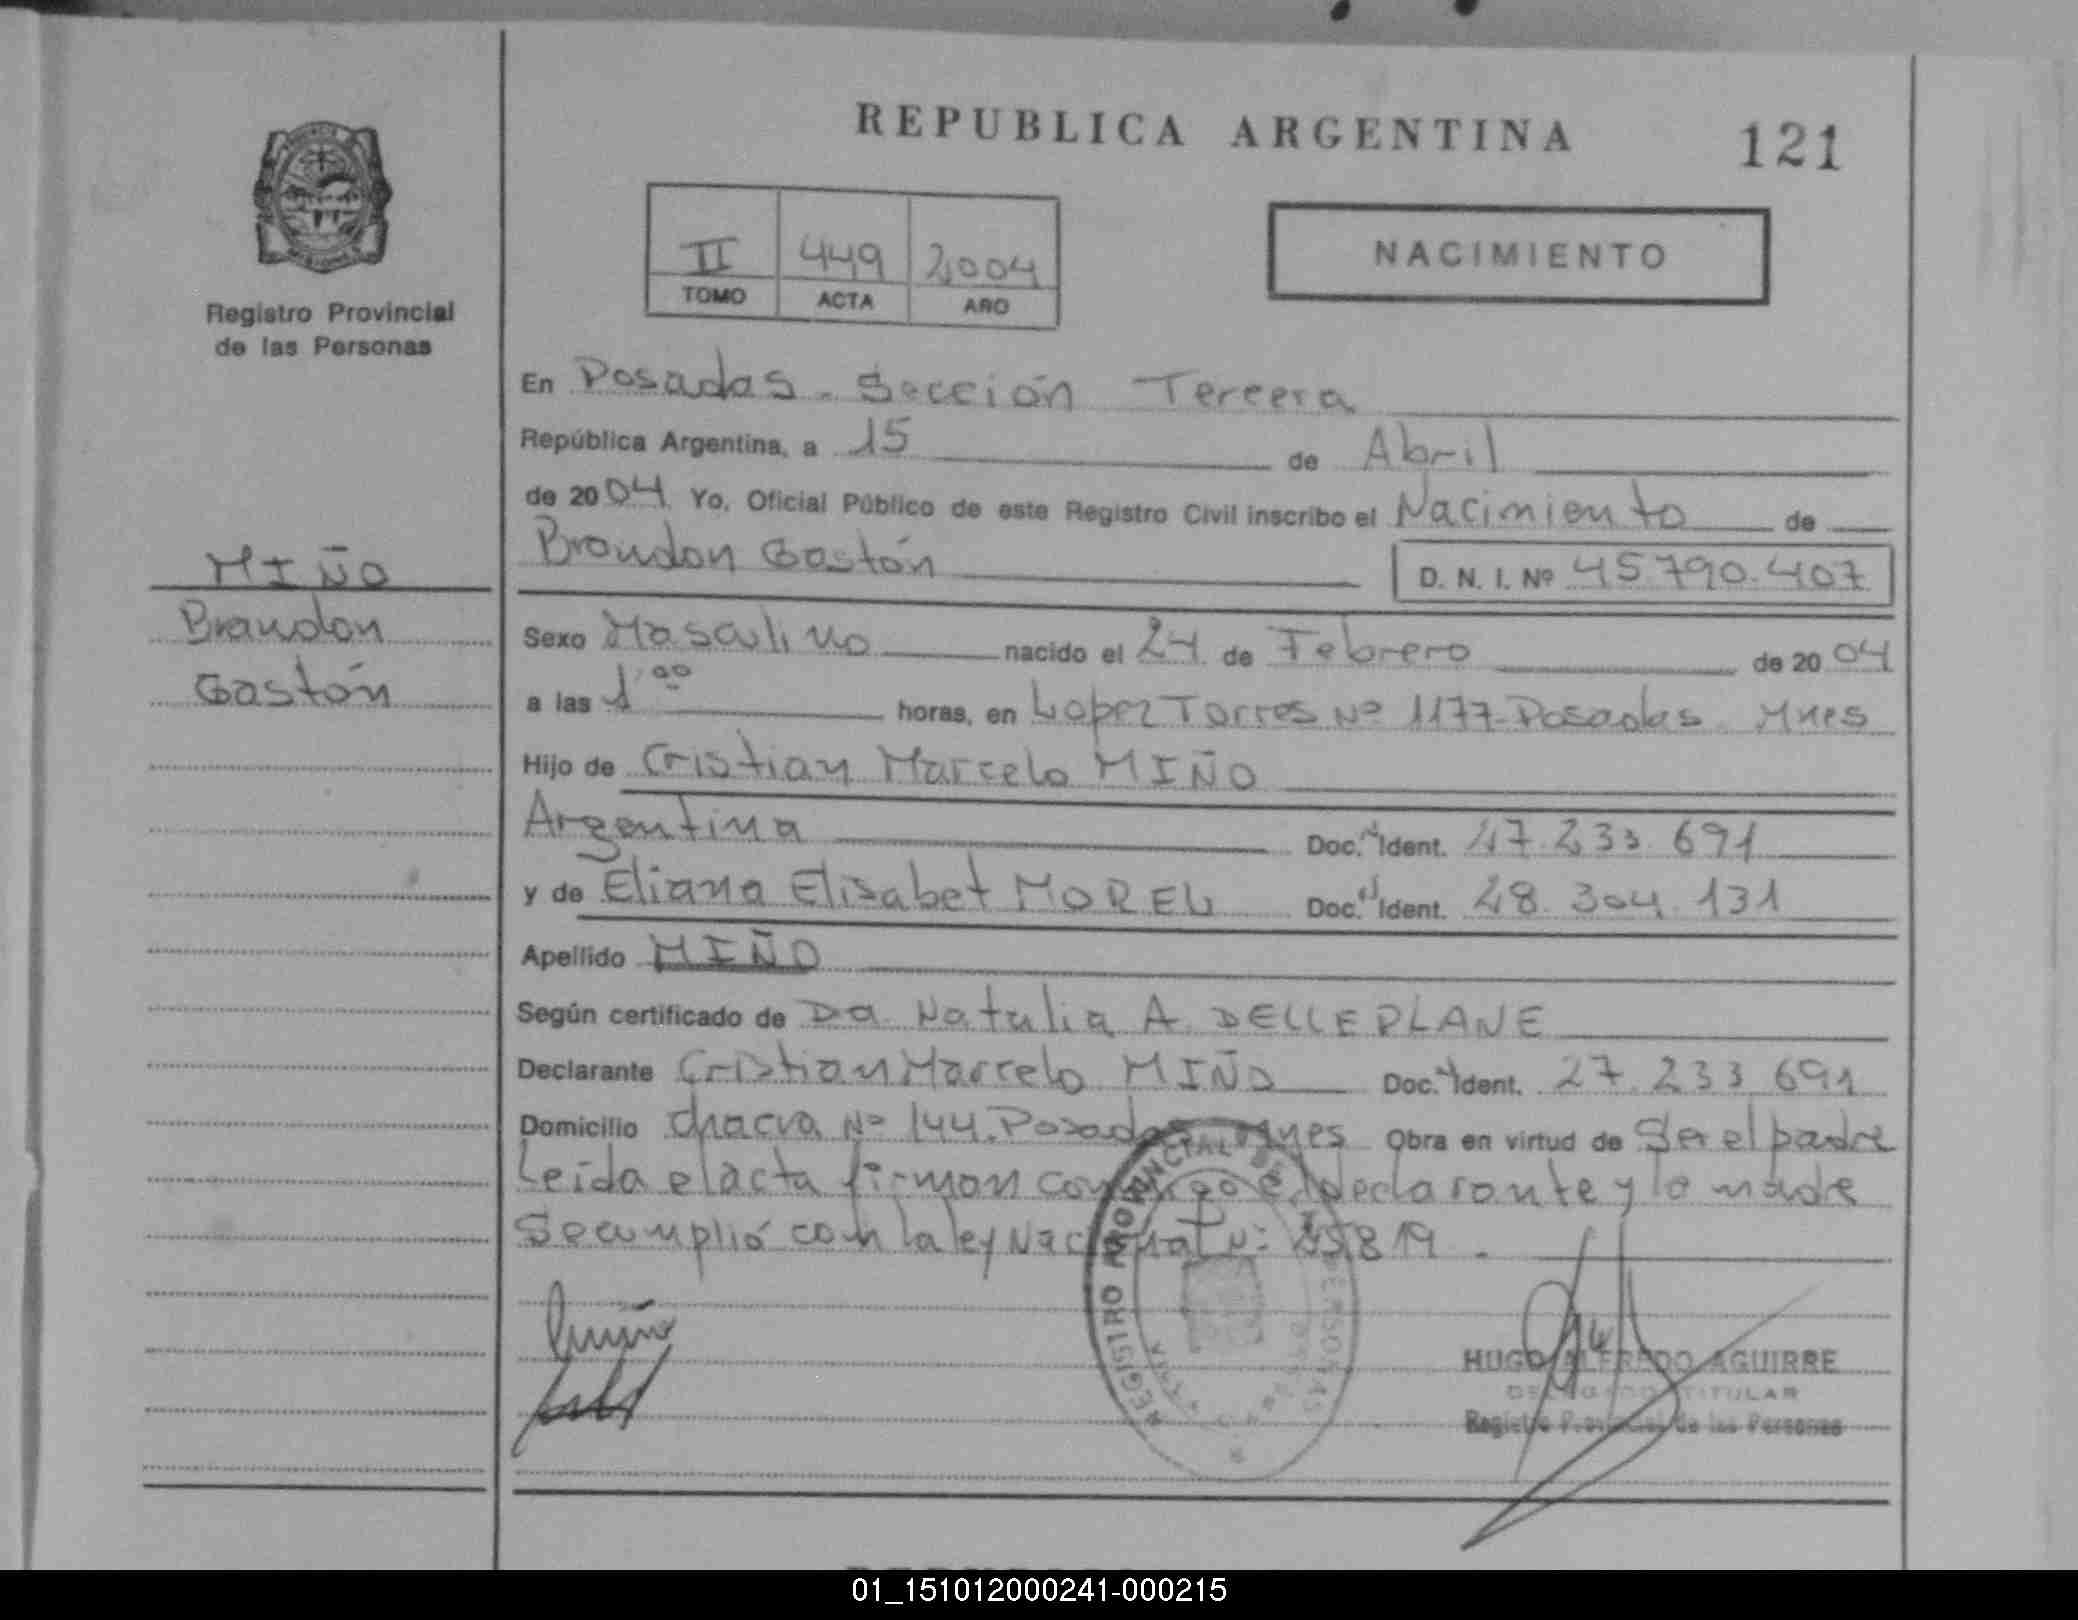 REPUBLICA ARGENTINA
121
II 449 2004
TOMO ACTA AÑO
NACIMIENTO
Registro Provincial
de las Personas
En Posadas. Sección Tercera
República Argentina, a 15 de Abril
de 2004 Yo, Oficial Público de este Registro Civil inscribo el Nacimiento de
Brandon Gastón D. N. I. Nº 45.790.407
MIÑO
Brandon
Gastón
Sexo Masculino nacido el 24 de Febrero de 2004
a las 1,00 horas, en Lopez Torres Nº 1177-Posadas. Mnes
Hijo de Cristian Marcelo MIÑO
Argentina Doc. Ident. 27.233.691
y de Eliana Elisabet MOREL Doc. Ident. 28.304.131
Apellido MIÑO
Según certificado de Da. Natalia A. DELLEPLANE
Declarante Cristian Marcelo MIÑO Doc. Ident. 27.233.691
Domicilio chacra Nº 144. Posadas Mnes Obra en virtud de Ser el padre
Leída el acta firman conmigo el declarante y la madre
Se cumplió con la ley Nacional Nº 25819.
REGISTRO PROVINCIAL DE LAS PERSONAS
HUGO ALFREDO AGUIRRE
DELEGADO TITULAR
Registro Provincial de las Personas
01_151012000241-000215